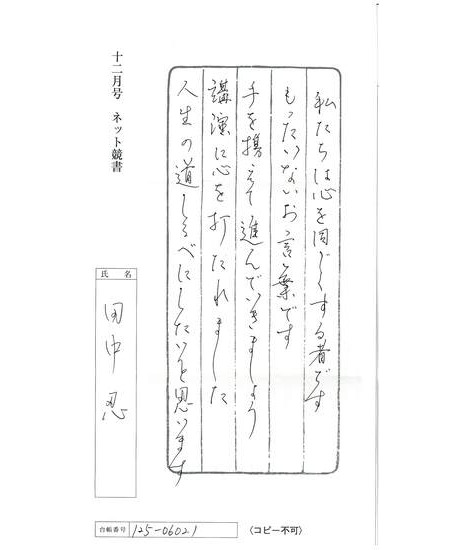 私たちは心を同じくする者です
もったいないお言葉です
手を携えて進んでいきましょう
講演に心を打たれました
人生の道しるべにしたいと思います
十二月号 ネット競書
氏 名
田中 忍
台帳番号 125-06021
(コピー不可)